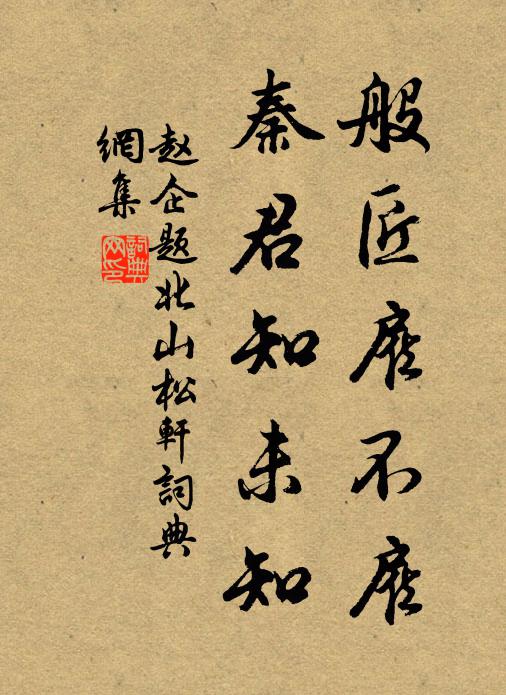 般匠雇不雇
秦君知未知
赵企题北山松軒詞典
網集
詞典
网印